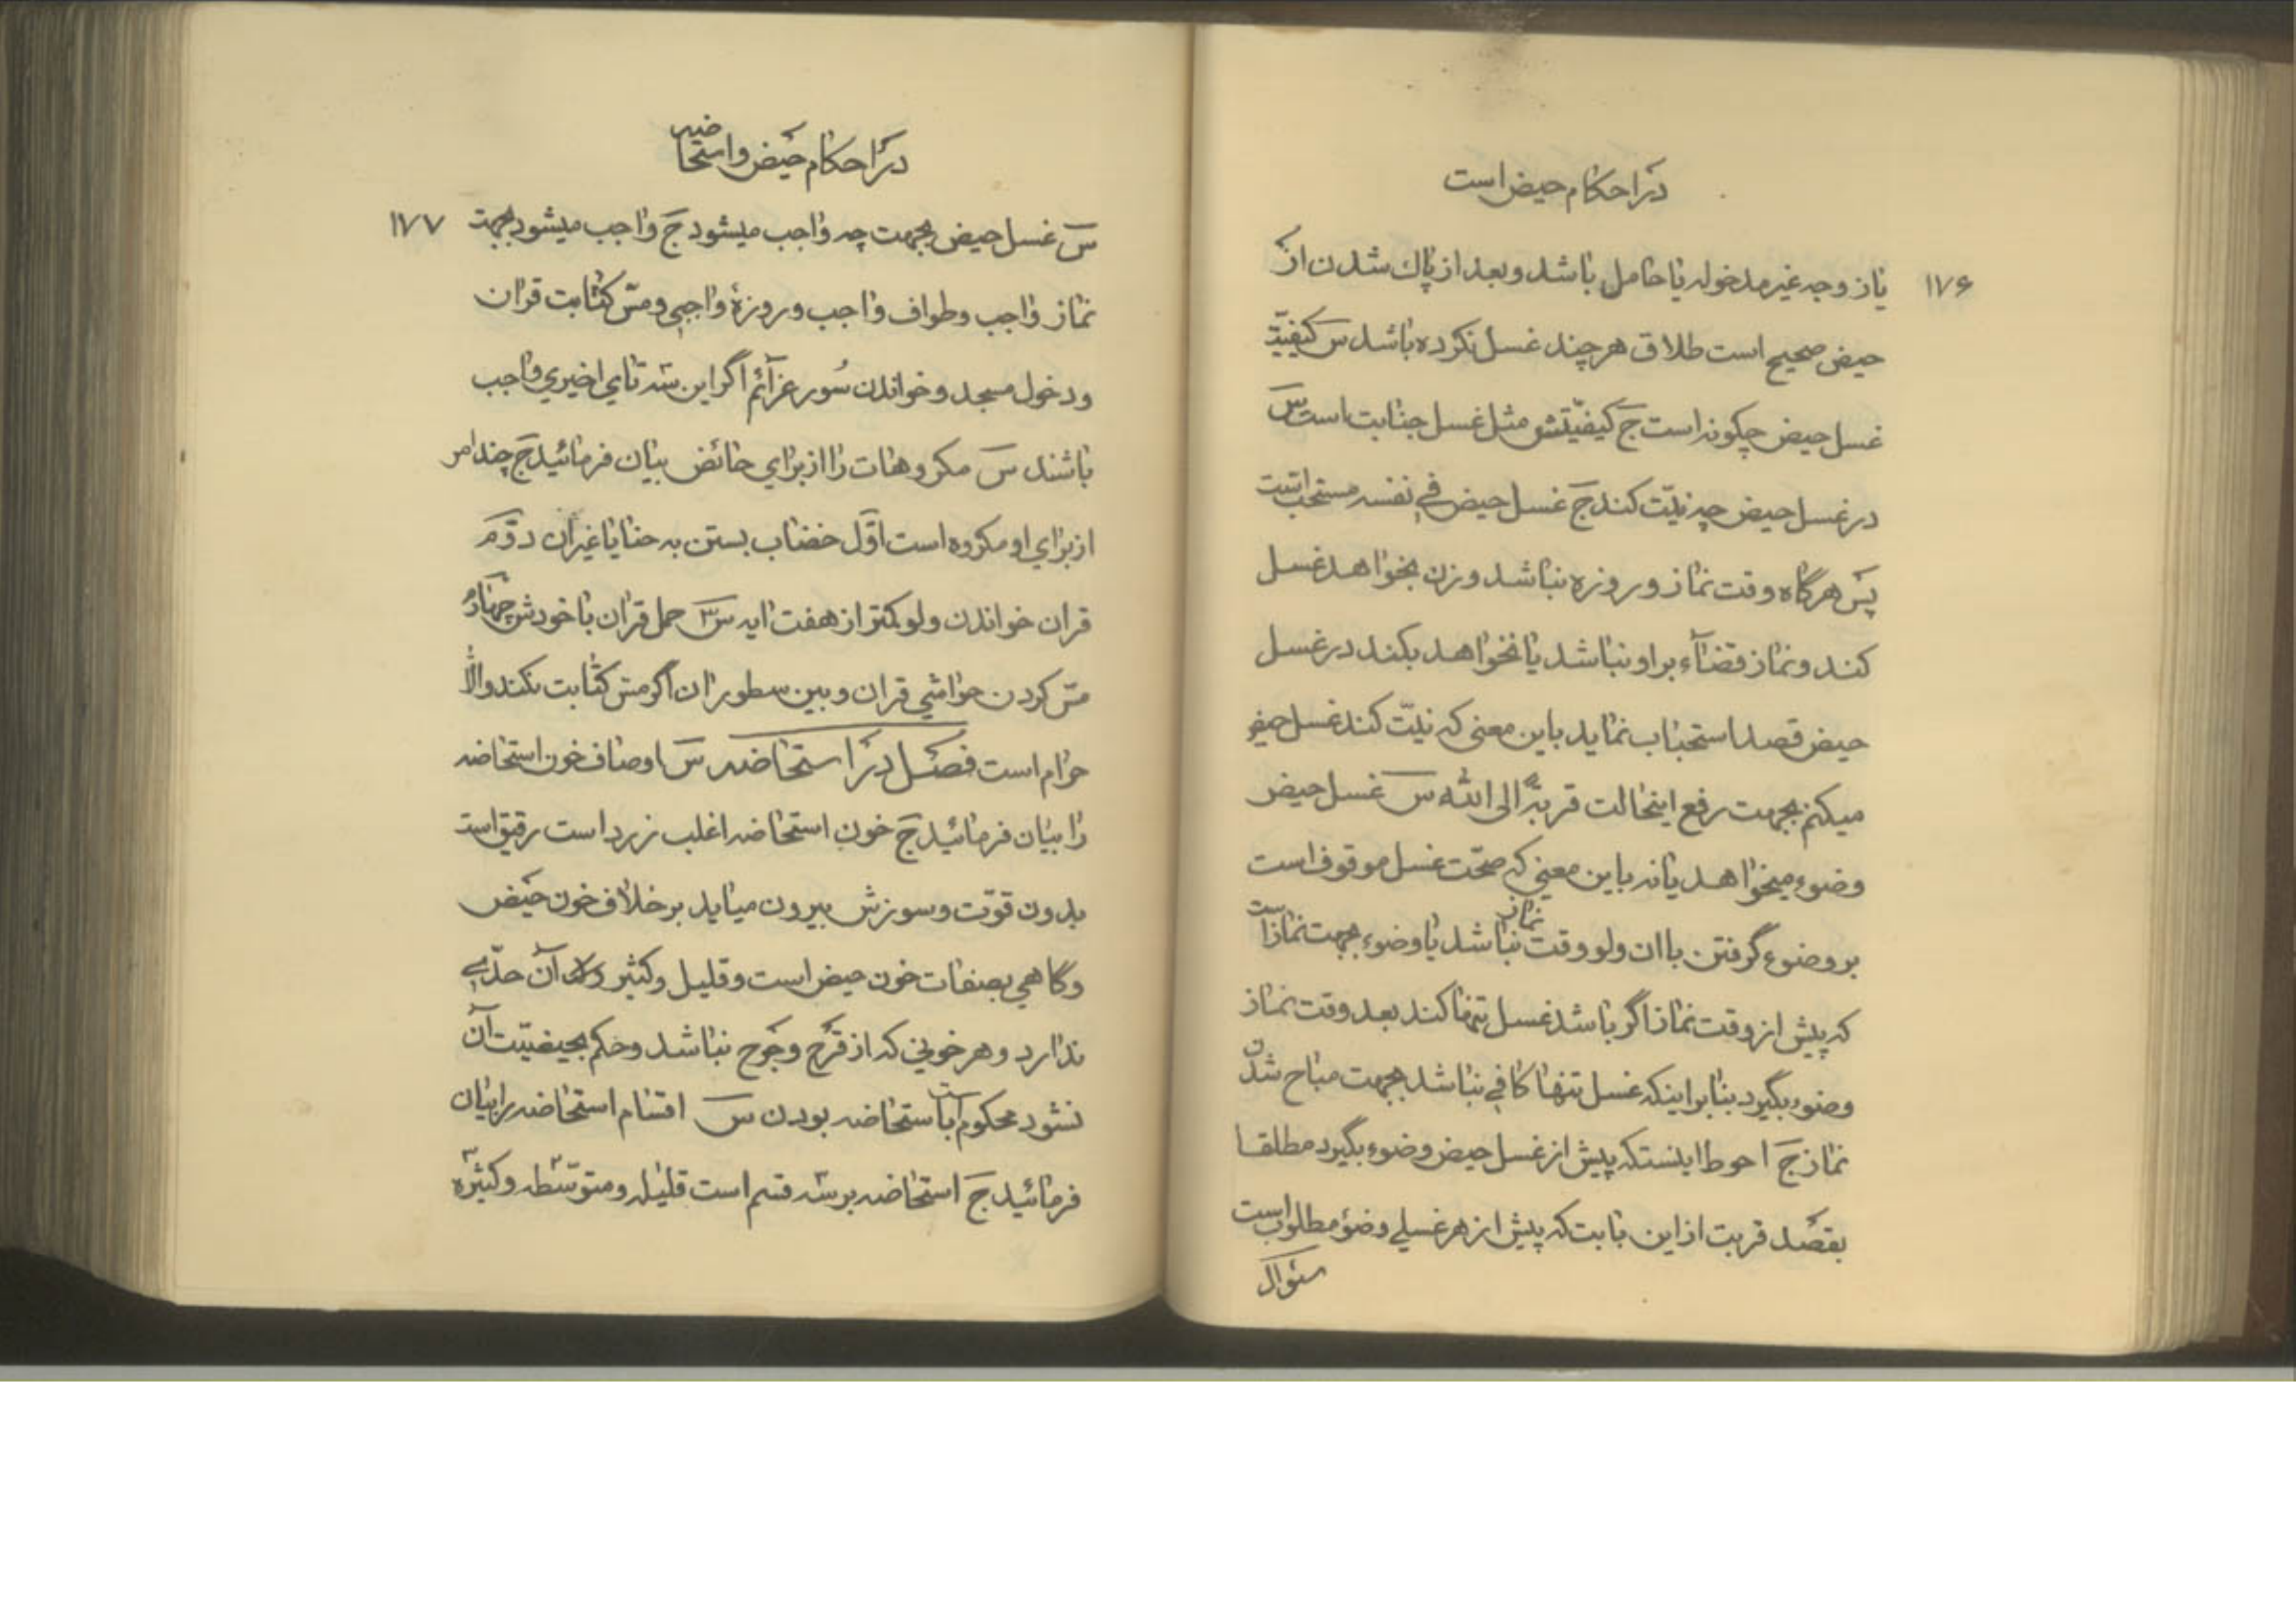 در احکام حیض است
۱۷۶
یا زوجه غیر مدخوله یا حامل باشد و بعد از پاك شدن از
حیض صحیح است طلاق هرچند غسل نکرده باشد س کیفیّت
غسل حیض چکونه است ج کیفیّتش مثل غسل جنابت است س
در غسل حیض چه نیّت کند ج غسل حیض فی نفسه مستحب است
پس هرگاه وقت نماز و روزه نباشد و زن بخواهد غسل
کند و نماز قضاء بر او نباشد یا نخواهد بکند در غسل
حیض قصد استحباب نماید باین معنی که نیّت کند غسل حیض
میکنم بجهت رفع اینحالت قربةً الی الله س غسل حیض
وضوء میخواهد یا نه باین معنی که صحّت غسل موقوف است
بر وضوء گرفتن باان ولو وقت نماز نباشد یا وضوء بجهت نماز است
که پیش از وقت نماز اگر باشد غسل تنها کند بعد وقت نماز
وضوء بگیرد بنا بر اینکه غسل تنها کافی نباشد بجهت مباح شدن
نماز ج احوط اینستکه پیش از غسل حیض وضوء بگیرد مطلقا
بقصد قربت از این بابت که پیش از هر غسلی وضؤ مطلوب است
سئوال
در احکام حیض و استحاضه
۱۷۷
س غسل حیض بجهت چه واجب میشود ج واجب میشود بجهت
نماز واجب و طواف واجب و روزهٔ واجبی و مسّ کتابت قران
و دخول مسجد و خواندن سُور عزآئم اگر این سه تای اخیری واجب
باشند س مکروهات را از برای حائض بیان فرمائید ج چند امر
از برای او مکروه است اوّل خضاب بستن به حنا یا غیر ان دوّم
قران خواندن ولو کمتر از هفت ایه س۳ حمل قران با خودش چهارم
مسّ کردن حواشی قران و بین سطور ان اگر مسّ کتابت نکند والّا
حرام است فصل در استحاضه س اوصاف خون استحاضه
را بیان فرمائید ج خون استحاضه اغلب زرد است رقیق است
بدون قوّت و سوزش بیرون میاید بر خلاف خون حیض
و گاهی بصفات خون حیض است و قلیل و کثیر آن حدّی
ندارد و هر خونی که از قَرح و جَرح نباشد و حکم بحیضیّت آن
نشود محکوم است باستحاضه بودن س اقسام استحاضه را بیان
فرمائید ج استحاضه بر سه قسم است قلیله و متوسّطه و کثیره